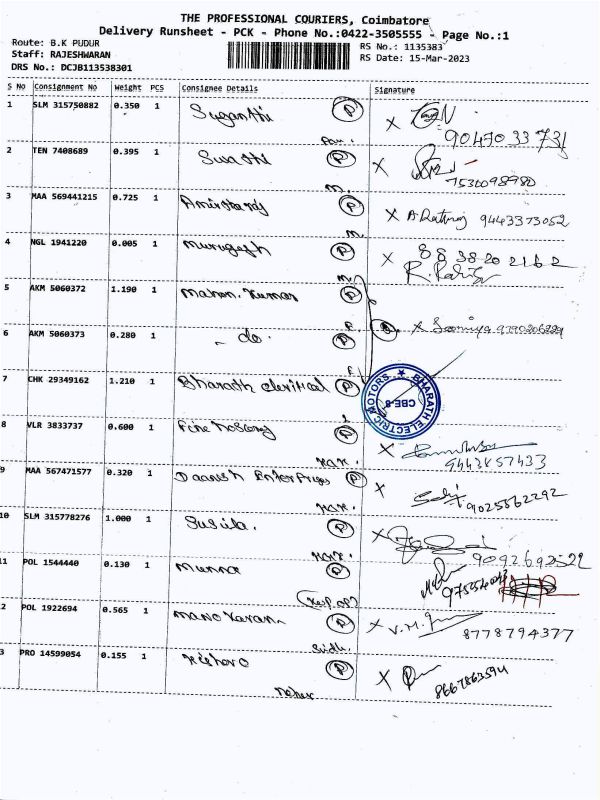 THE PROFESSIONAL COURIERS, Coimbatore
Delivery Runsheet - PCK - Phone No.:0422-3505555 - Page No.:1
Route: B.K PUDUR
Staff: RAJESHWARAN
DRS No.: DCJB113538301
RS No.: 1135383
RS Date: 15-Mar-2023
S No Consignment No Weight PCS Consignee Details Signature
1 SLM 315750882 0.350 1 Suganthi P
90470 33 731
2 TEN 7408689 0.395 1 Swathi P
7530098980
3 MAA 569441215 0.725 1 P X 9443373052
4 NGL 1941220 0.005 1 Murugesh P X 88 38 20 2162
5 AKM 5060372 1.190 1 Mahon. Kumar P
6 AKM 5060373 0.280 1 - do. P X Sowmiya
7 CHK 29349162 1.210 1 Bharath electrical P
BHARATH ELECTRIC MOTORS CBE-8
8 VLR 3833737 0.600 1 P X
9443457433
9 MAA 567471577 0.320 1 Daanish Enterprises P X
9025862292
10 SLM 315778276 1.000 1 Susila. P X
9092692522
11 POL 1544440 0.130 1 Munna P
2 POL 1922694 0.565 1 Mano Karan P X V.M.
8778794377
3 PRO 14599054 0.155 1 Kishore P X
8667863594